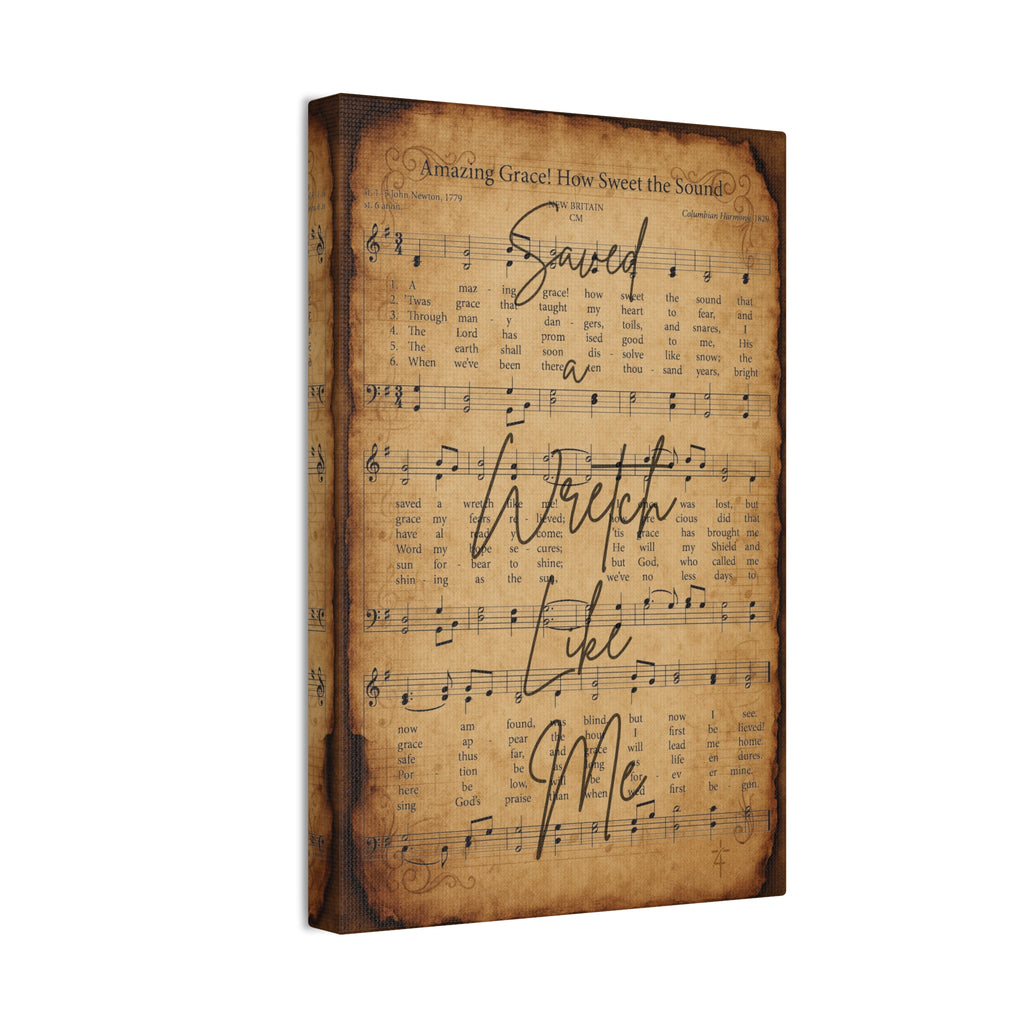 Amazing Grace! How Sweet the Sound
st. 1-5 John Newton, 1779
st. 6 anon.
NEW BRITAIN
CM
Columbian Harmony, 1829
Saved
1. A maz - ing grace! how sweet the sound that
2. 'Twas grace that taught my heart to fear, and
3. Through man - y dan - gers, toils, and snares, I
4. The Lord has prom ised good to me, His
5. The earth shall soon dis - solve like snow; the
6. When we've been there ten thou - sand years, bright
a
Wretch
saved a wretch like me! was lost, but
grace my fears re - lieved; cious did that
have al read y come; 'tis grace has brought me
Word my hope se - cures; He will my Shield and
sun for - bear to shine; but God, who called me
shin - ing as the sun, we've no less days to
Like
Me
now am found, was blind, but now I see.
grace ap - pear the hour I first be lieved!
safe thus far, and grace will lead me home.
Por - tion be as long as life en dures.
here be low, will be for - ev er mine.
sing God's praise than when first be gun.